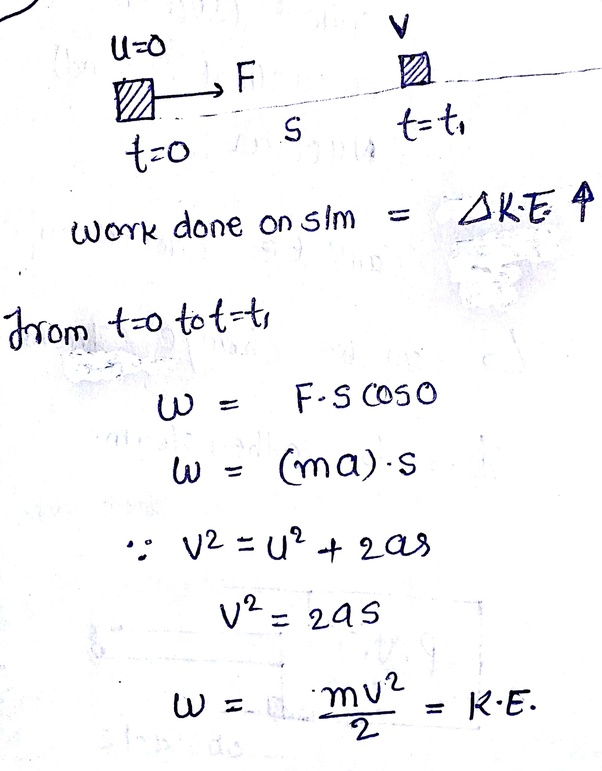 u=0
F
V
t=0
S
t=t₁
work done on s/m = ΔK.E. ↑
from t=0 to t=t₁
W = F·S COS0
W = (ma)·S
∵ V² = u² + 2as
V² = 2as
W = mv²/2 = K.E.